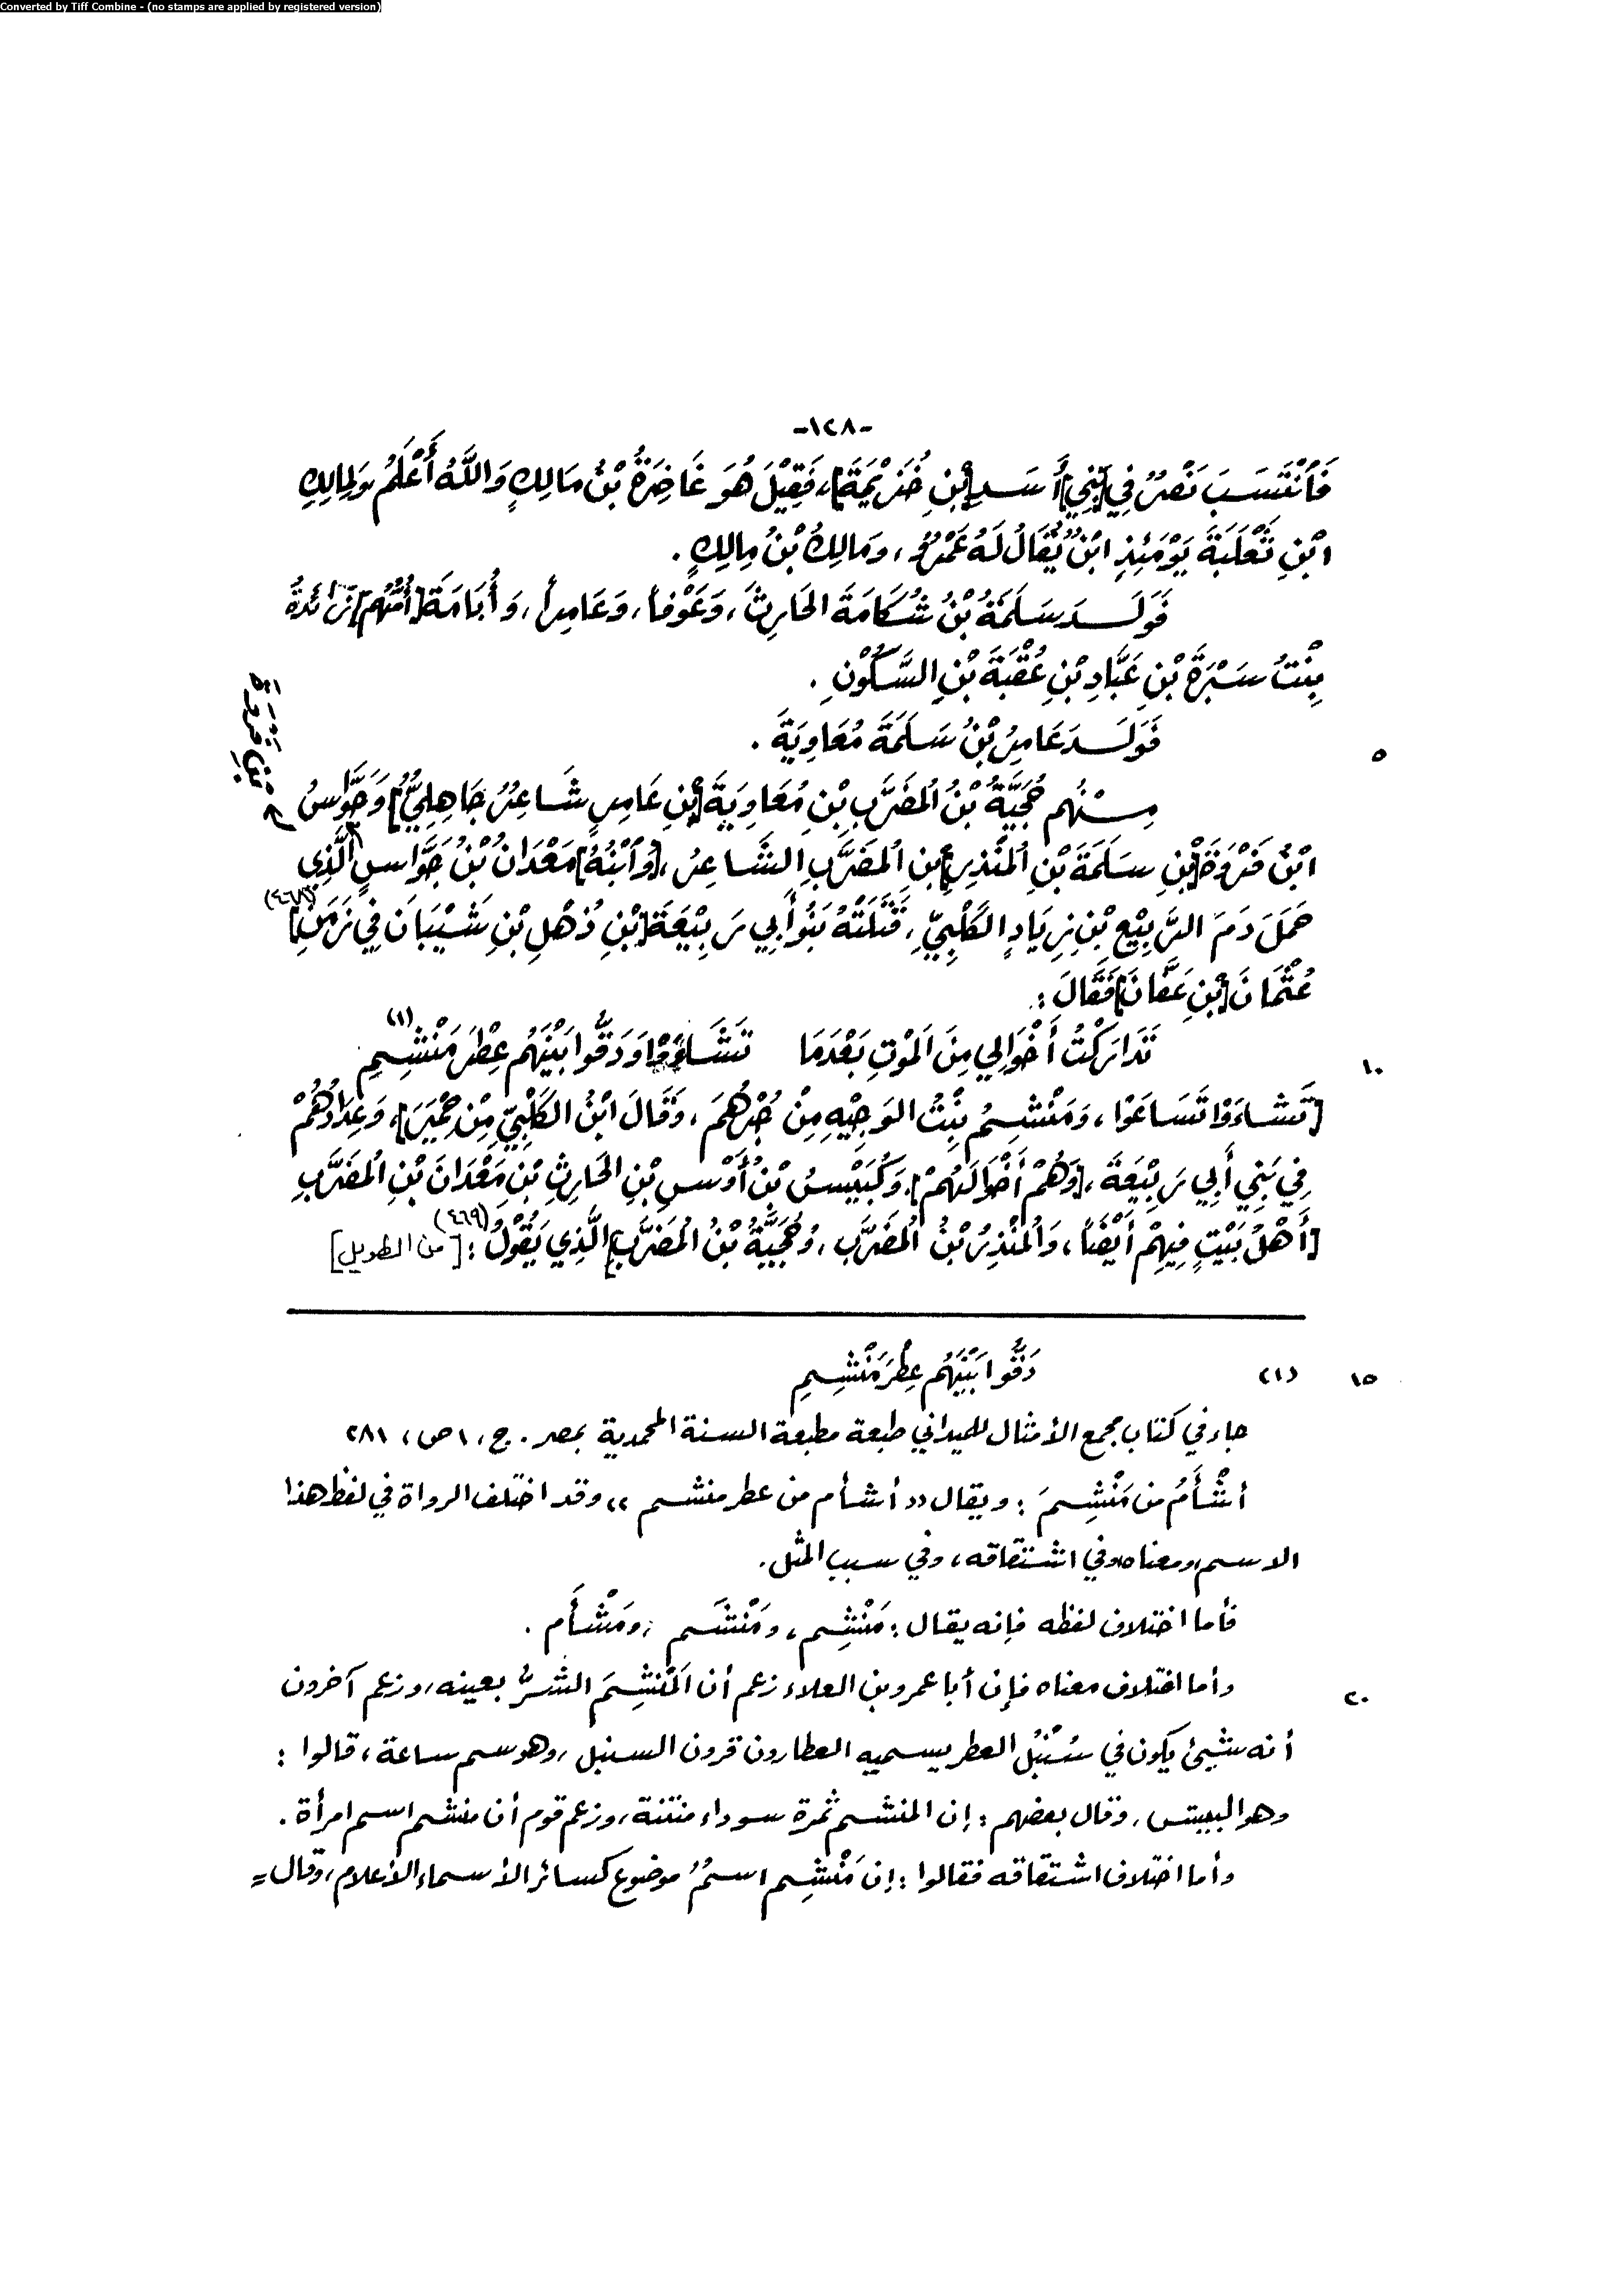 Converted by Tiff Combine - (no stamps are applied by registered version)
-١٢٨-
فَٱنْتَسَبَ نَصْرٌ فِي [بَنِي] أَسَدِ [بْنِ خُزَيْمَةَ]، فَقِيْلَ هُوَ غَاضِرَةُ بْنُ مَالِكٍ وَاللَّهُ أَعْلَمُ وَلِمَالِكِ
ابْنِ ثَعْلَبَةَ يَوْمَئِذٍ ابْنٌ يُقَالُ لَهُ عَمْرٌو، وَمَالِكُ بْنُ مَالِكٍ.
فَوَلَدَ سَلَمَةُ بْنُ شُكَامَةَ الحَارِثَ، وَعَوْفاً، وَعَامِراً، وَأُبَامَةَ [أُمُّهُم] زَائِدَةُ
بِنْتُ سَبْرَةَ بْنِ عَبَّادِ بْنِ عُقْبَةَ بْنِ السَّكُوْنِ.
فَوَلَدَ عَامِرُ بْنُ سَلَمَةَ مُعَاوِيَةَ.
٥
مِنْهُم حُجَيَّةُ بْنُ المُضَرَّبِ بْنِ مُعَاوِيَةَ [بْنِ عَامِرٍ شَاعِرٌ جَاهِلِيٌّ] وَجَوَّاسُ
ابْنُ فَرْوَةَ [بْنِ سَلَمَةَ بْنِ المُنْذِرِ] بْنِ المُضَرَّبِ الشَّاعِرُ، [وَٱبْنُهُ] مَعْدَانُ بْنُ جَوَّاسٍ الَّذِي
حَمَلَ دَمَ الرَّبِيْعِ بْنِ زِيَادٍ الكَلْبِيِّ، قَتَلَتْهُ بَنُو أَبِي رَبِيْعَةَ [بْنِ ذُهْلِ بْنِ شَيْبَانَ فِي زَمَنِ] (٤٦٨)
عُثْمَانَ [بْنِ عَفَّانَ] فَقَالَ:
تَدَارَكْتُ أَخْوَالِي مِنَ المَوْتِ بَعْدَمَا تَشَاءَوْا وَدَقُّوا بَيْنَهُم عِطْرَ مَنْشِمِ (١)
١٠
[تَشَاءَوْا تَسَاعَوْا، وَمَنْشِمُ بِنْتُ الوَجِيْهِ مِنْ جُرْهُمَ، وَقَالَ ابْنُ الكَلْبِيِّ مِنْ حِمْيَرَ]، وَعِدَادُهُمْ
فِي بَنِي أَبِي رَبِيْعَةَ، [وَهُمْ أَخْوَالُهُمْ]. وَكُبَيْسُ بْنُ أَوْسِ بْنِ الحَارِثِ بْنِ مَعْدَانَ بْنِ المُضَرَّبِ
[أَهْلُ بَيْتٍ فِيْهِمْ أَيْضاً، وَالمُنْذِرُ بْنُ المُضَرَّبِ، وَحُجَيَّةُ بْنُ المُضَرَّبِ] الَّذِي يَقُوْلُ: (٤٦٩) [من الطويل]
(١) دَقُّوا بَيْنَهُم عِطْرَ مَنْشِمِ
١٥
جاء في كتاب مجمع الأمثال للميداني طبعة مطبعة السنة المحمدية بمصر. ج، ١ ص، ٢٨١
أَشْأَمُ من مَنْشِمَ: ويقال «أشأم من عطر منشم» وقد اختلف الرواة في لفظ هذا
الاسم، ومعناه وفي اشتقاقه، وفي سبب المثل.
فأما اختلاف لفظه فإنه يقال: مَنْشِم، ومَنْشَم، ومَشْأَم.
وأما اختلاف معناه فإن أبا عمرو بن العلاء زعم أن المَنْشِمَ الشرُّ بعينه، وزعم آخرون
٢٠
أنه شيئ يكون في سُنْبُل العطر يسميه العطارون قرون السنبل، وهو سم ساعة، قالوا:
وهو البيتس، وقال بعضهم: إن المنشم ثمرة سوداء منتنة، وزعم قوم أن منشم اسم امرأة.
وأما اختلاف اشتقاقه فقالوا: إن مَنْشِم اسمٌ موضوع كسائر الأسماء الأعلام، وقال =